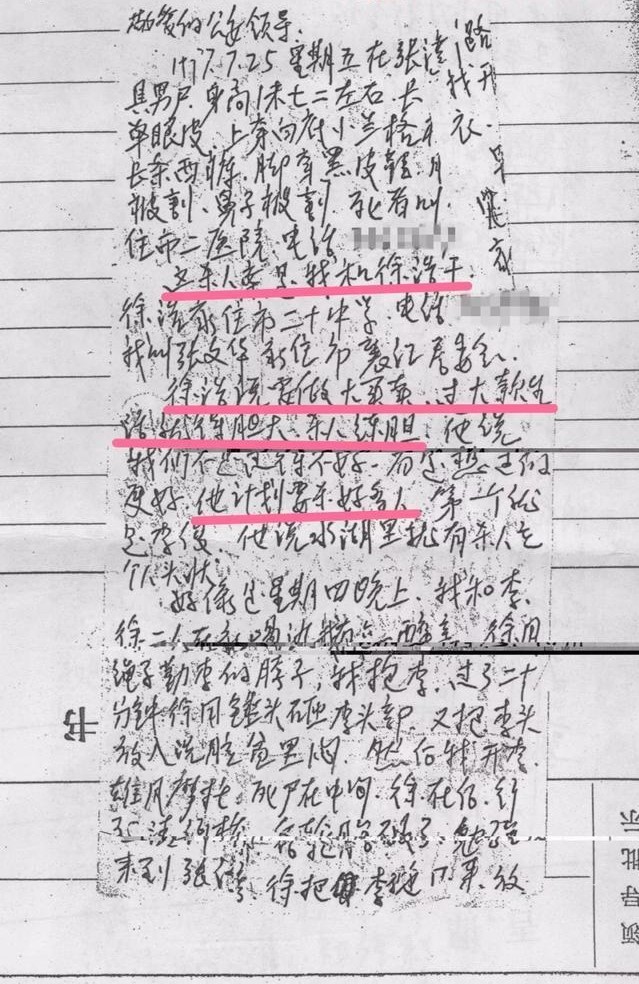 敬爱的公安领导.
1997.7.25 星期五在张湾
具男尸. 身高1米七二左右. 长
单眼皮. 上穿白底小兰格
长条西裤. 脚穿黑皮鞋. 
被割. 鼻子被割. 死者叫
住市二医院. 电话
这杀人案是我和徐浩干
徐浩家住市二十中学. 电话
我叫张文华 家住市襄江居委会.
徐浩说要做大买卖. 过大款生
活就得胆大. 杀人练胆. 他说
我们不是过得不好. 而是想过的
更好. 他计划要杀好多人. 第一个
是李俊. 他说水湖里就有杀人
个人头
好像是星期四晚上. 我和李.
徐二人在 喝酒 徐用
绳子勒李的脖子, 我抱李. 过了二十
分钟徐用锤头砸李头部. 又把李头
放入洗脸盆里闷. 然后我开李.
雄风摩托. 死尸在中间. 徐在后. 行
后轮胎破了. 勉强
来到张湾. 徐把李 放
路
我开
衣.
家
书
示
批
导
领